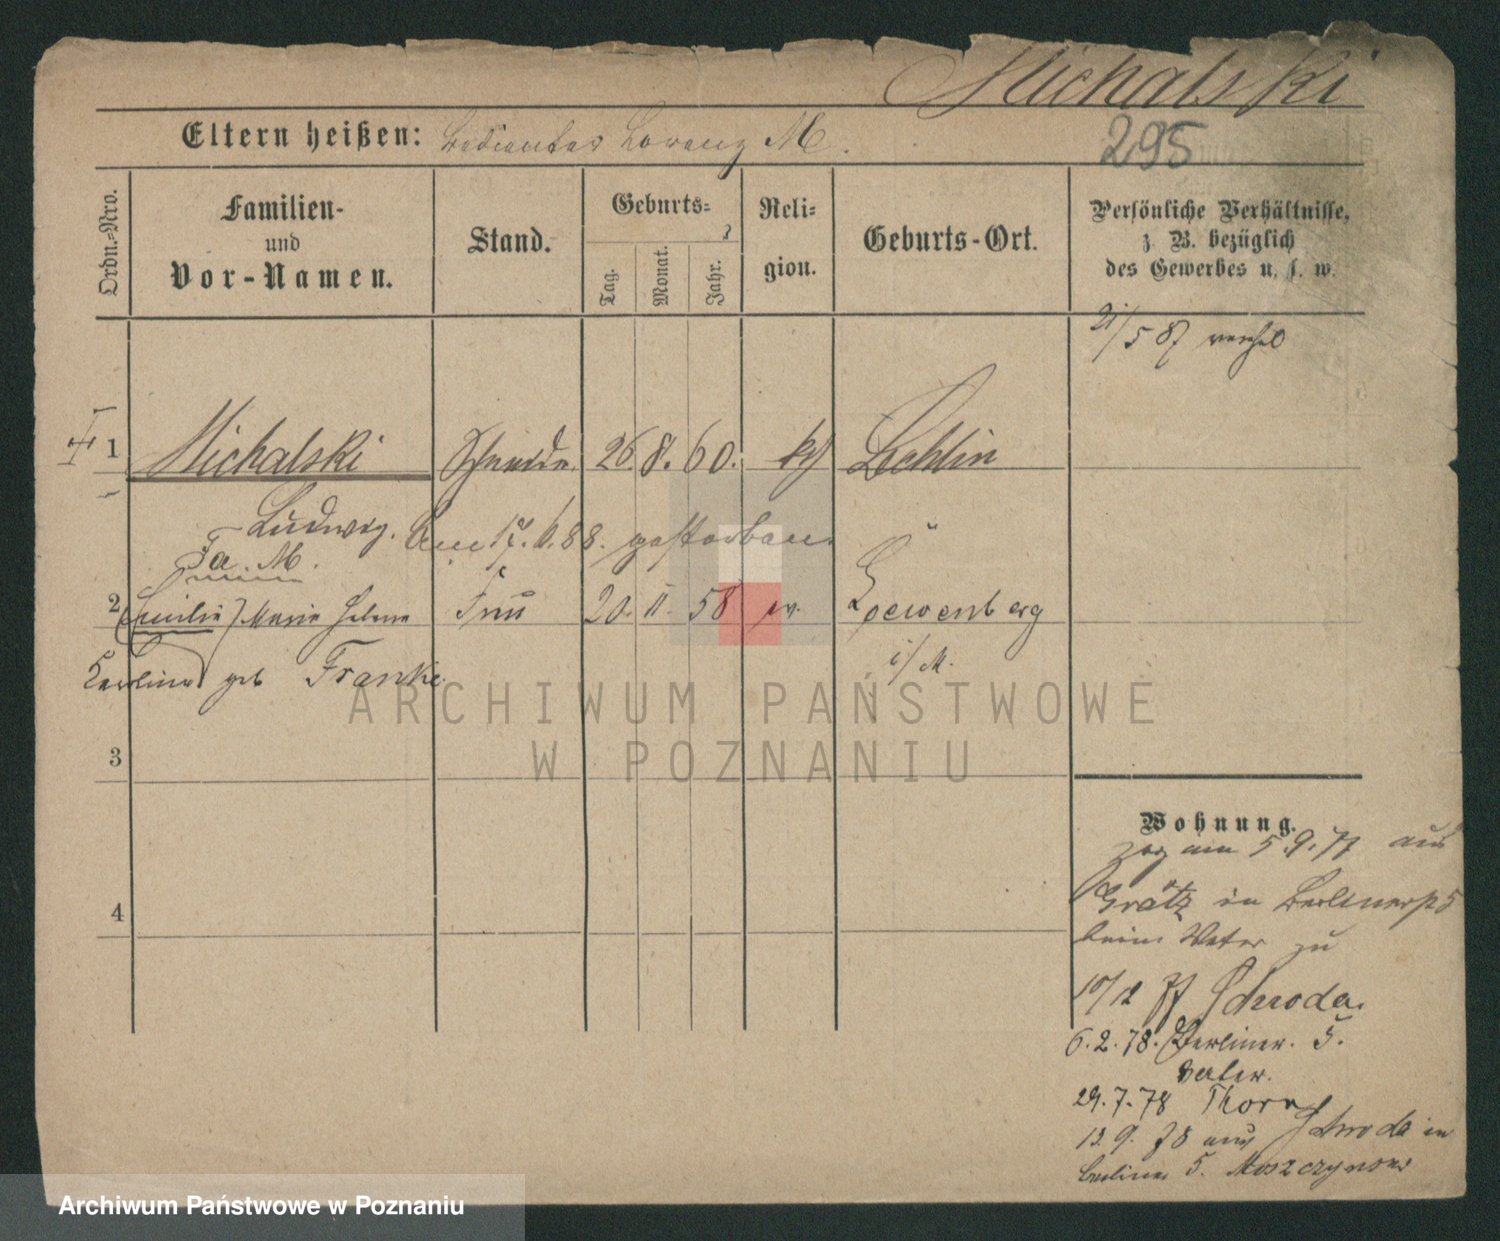 Michalski
Eltern heißen: Bedienter Lorenz M.
295
Ordn.=Nro.
Familien-
und
Vor-Namen.
Stand.
Geburts=
Tag.
Monat.
Jahr.
Reli=
gion.
Geburts-Ort.
Persönliche Verhältnisse,
z. B. bezüglich
des Gewerbes u. s. w.
21/5 87
1 Michalski Schneider 26. 8. 60. kth Lechlin
Ludwig. Am 17. 6. 88. gestorben.
2 (Emilie) Marie Helene Frau 20. II. 58 ev. Loewenberg
i/M.
Karoline geb Franke
3
4
Wohnung.
Zog am 5.9.77 aus
Grätz in Berlinerst 5
beim Vater zu
10/12 77 Schroda.
6.2.78. Berliner. 5.
Vater.
29.7.78 Thorn
13 9. 78 aus Schroda in
Berliner 5.
ARCHIWUM PAŃSTWOWE
W POZNANIU
Archiwum Państwowe w Poznaniu